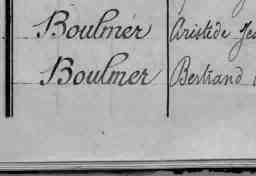 Boulmer Aristide Je
Boulmer Bertrand